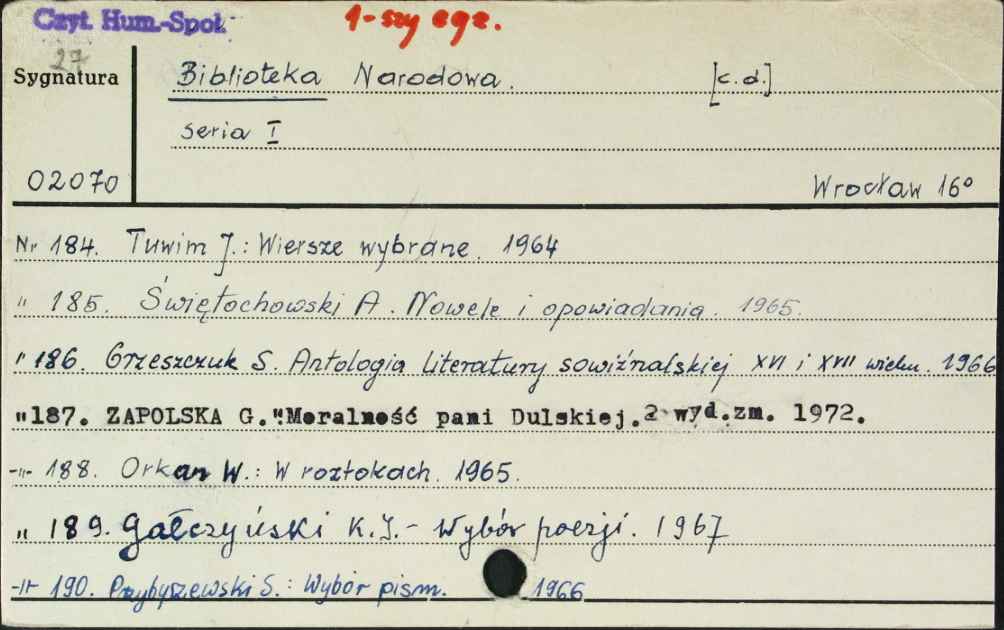 Czyt. Hum.-Społ. 1-szy egz.
27
Sygnatura Biblioteka Narodowa. [c.d.]
seria I
02070 Wrocław 16°
Nr 184. Tuwim J.: Wiersze wybrane. 1964
" 185. Świętochowski A. Nowele i opowiadania. 1965.
" 186. Grzeszczuk S. Antologia literatury sowiźrzalskiej XVI i XVII wieku. 1966
"187. ZAPOLSKA G.":Moralność pani Dulskiej.2 wyd.zm. 1972.
-"- 188. Orkan W.: W roztokach. 1965.
" 189. Gałczyński K.J.- Wybór poezji. 1967
-"- 190. Przybyszewski S.: Wybór pism. 1966